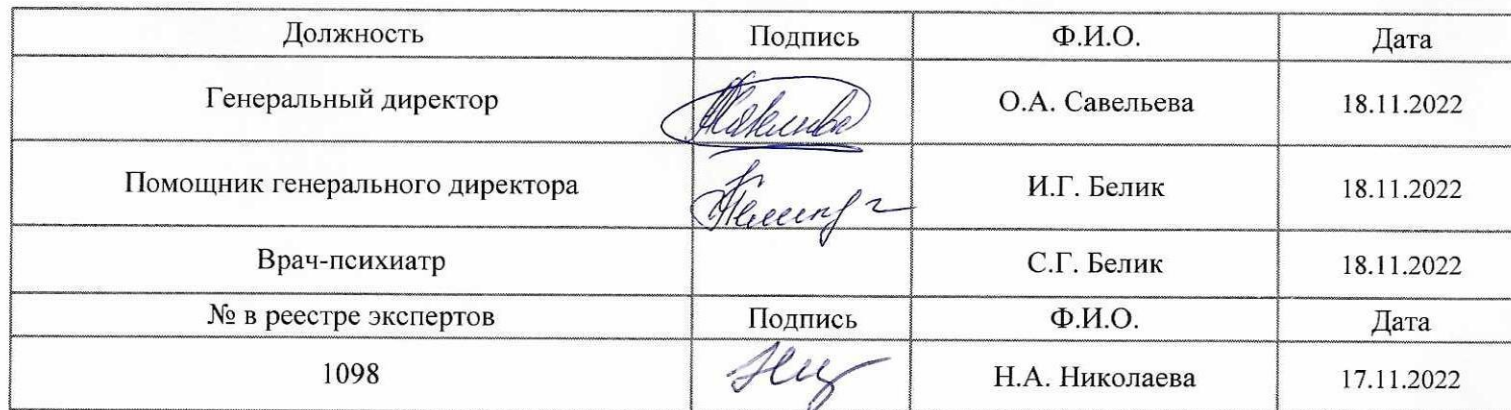 Должность Подпись Ф.И.О. Дата
Генеральный директор О.А. Савельева 18.11.2022
Помощник генерального директора И.Г. Белик 18.11.2022
Врач-психиатр С.Г. Белик 18.11.2022
№ в реестре экспертов Подпись Ф.И.О. Дата
1098 Н.А. Николаева 17.11.2022